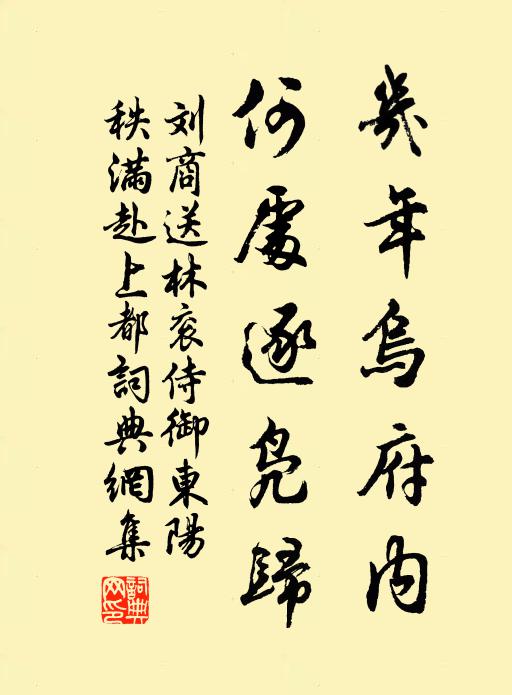 幾年烏府內
何處逐鳧歸
刘商送林袞侍御東陽
秩滿赴上都詞典網集
詞典網印